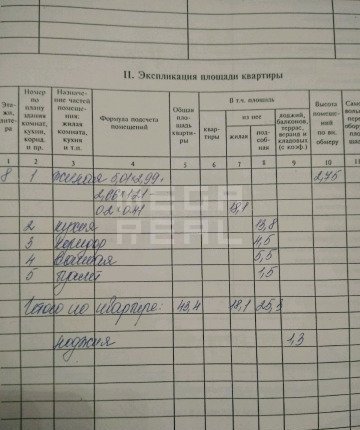 II. Экспликация площади квартиры
Эта-
жи,
лите-
ра
Номер
по
плану
здания
комнат,
кухни,
корид.
и пр.
Назначе-
ние частей
помещения:
жилая
комната,
кухня
и т.п.
Формула подсчета
помещений
Общая
пло-
щадь
кварти-
ры
В т.ч. площадь
квар-
тиры
из нее
жилая
под-
соб-
ная
лоджий,
балконов,
террас,
веранд и
кладовых
(с коэф.)
Высота
помеще-
ний
по вн.
обмеру
1 2 3 4 5 6 7 8 9 10 11
8 1 жилая 5.01×2.99- 2,75
2,06×1.21-
0.2×0.41 18,1
MEGA
REAL
2 кухня 13,8
3 коридор 4,5
4 Ванная 5,5
5 туалет 1,5
Итого по квартире: 43,4 18,1 25,3
лоджия 1,3